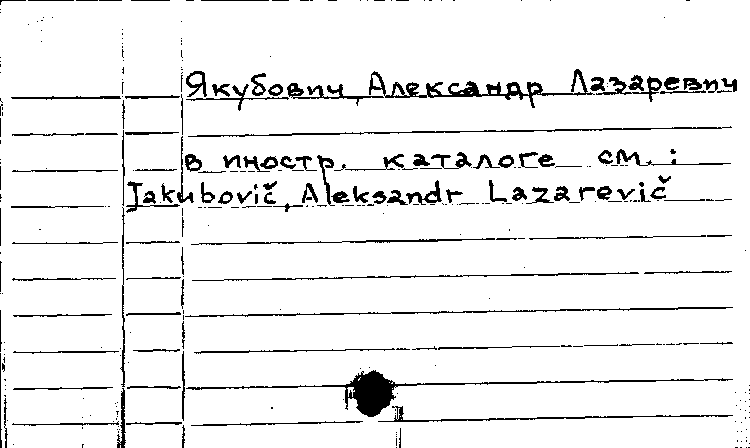 Якубович, Александр Лазаревич
в иностр. каталоге см.:
Jakubovič, Aleksandr Lazarevič